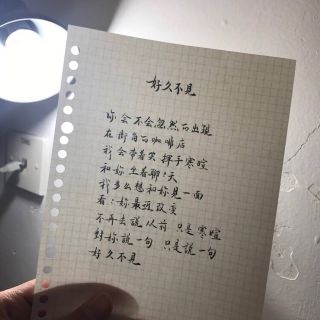 好久不見
你会不会忽然的出現
在街角的咖啡店
我会带着笑 挥手寒暄
和妳坐着聊聊天
我多么想和妳見一面
看看妳最近改变
不再去說从前 只是寒暄
對妳說一句 只是說一句
好久不見